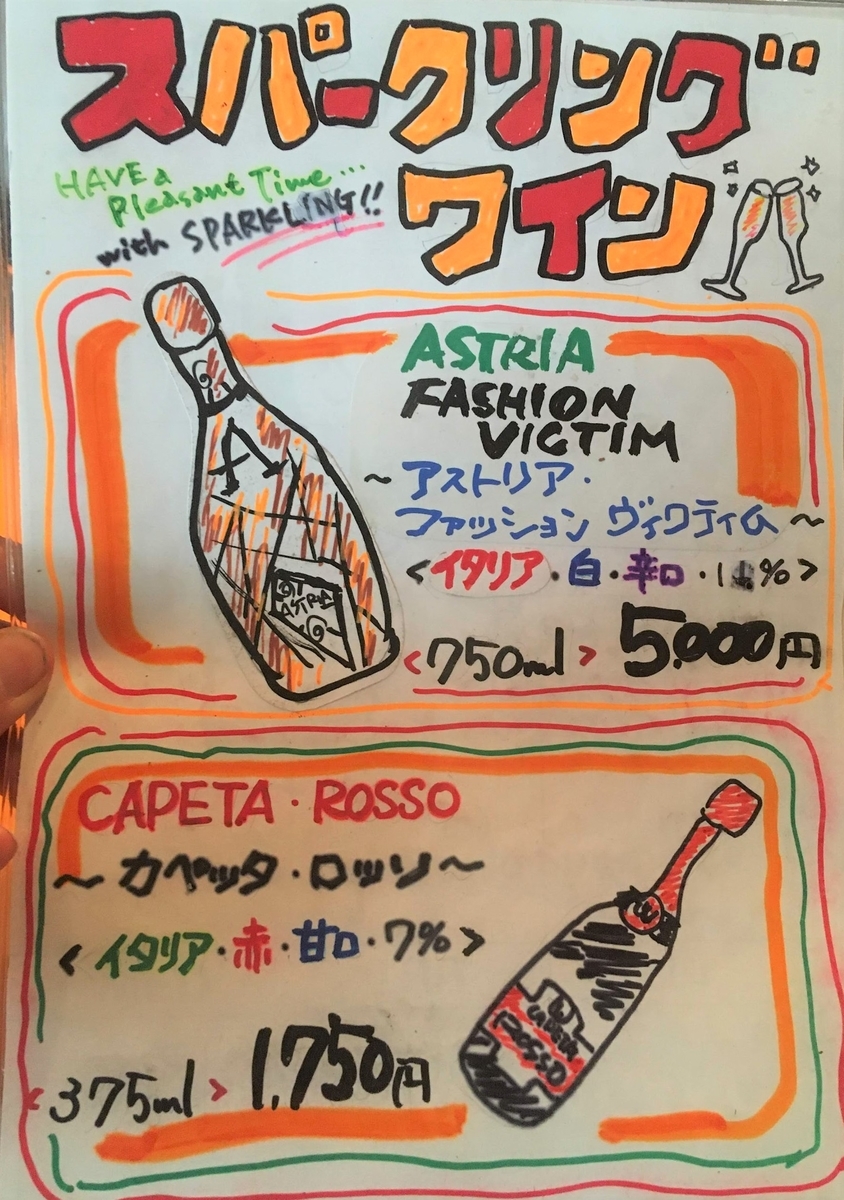 スパークリング
ワイン
HAVE a
Pleasant Time...
with SPARKLING!!
ASTRIA
FASHION
VICTIM
~アストリア・
ファッション ヴィクティム~
<イタリア・白・辛口・11%>
<750ml> 5.000円
ASTRIA
CAPETA・ROSSO
~カペッタ・ロッソ~
<イタリア・赤・甘口・7%>
<375ml> 1.750円
CAPETA
ROSSO